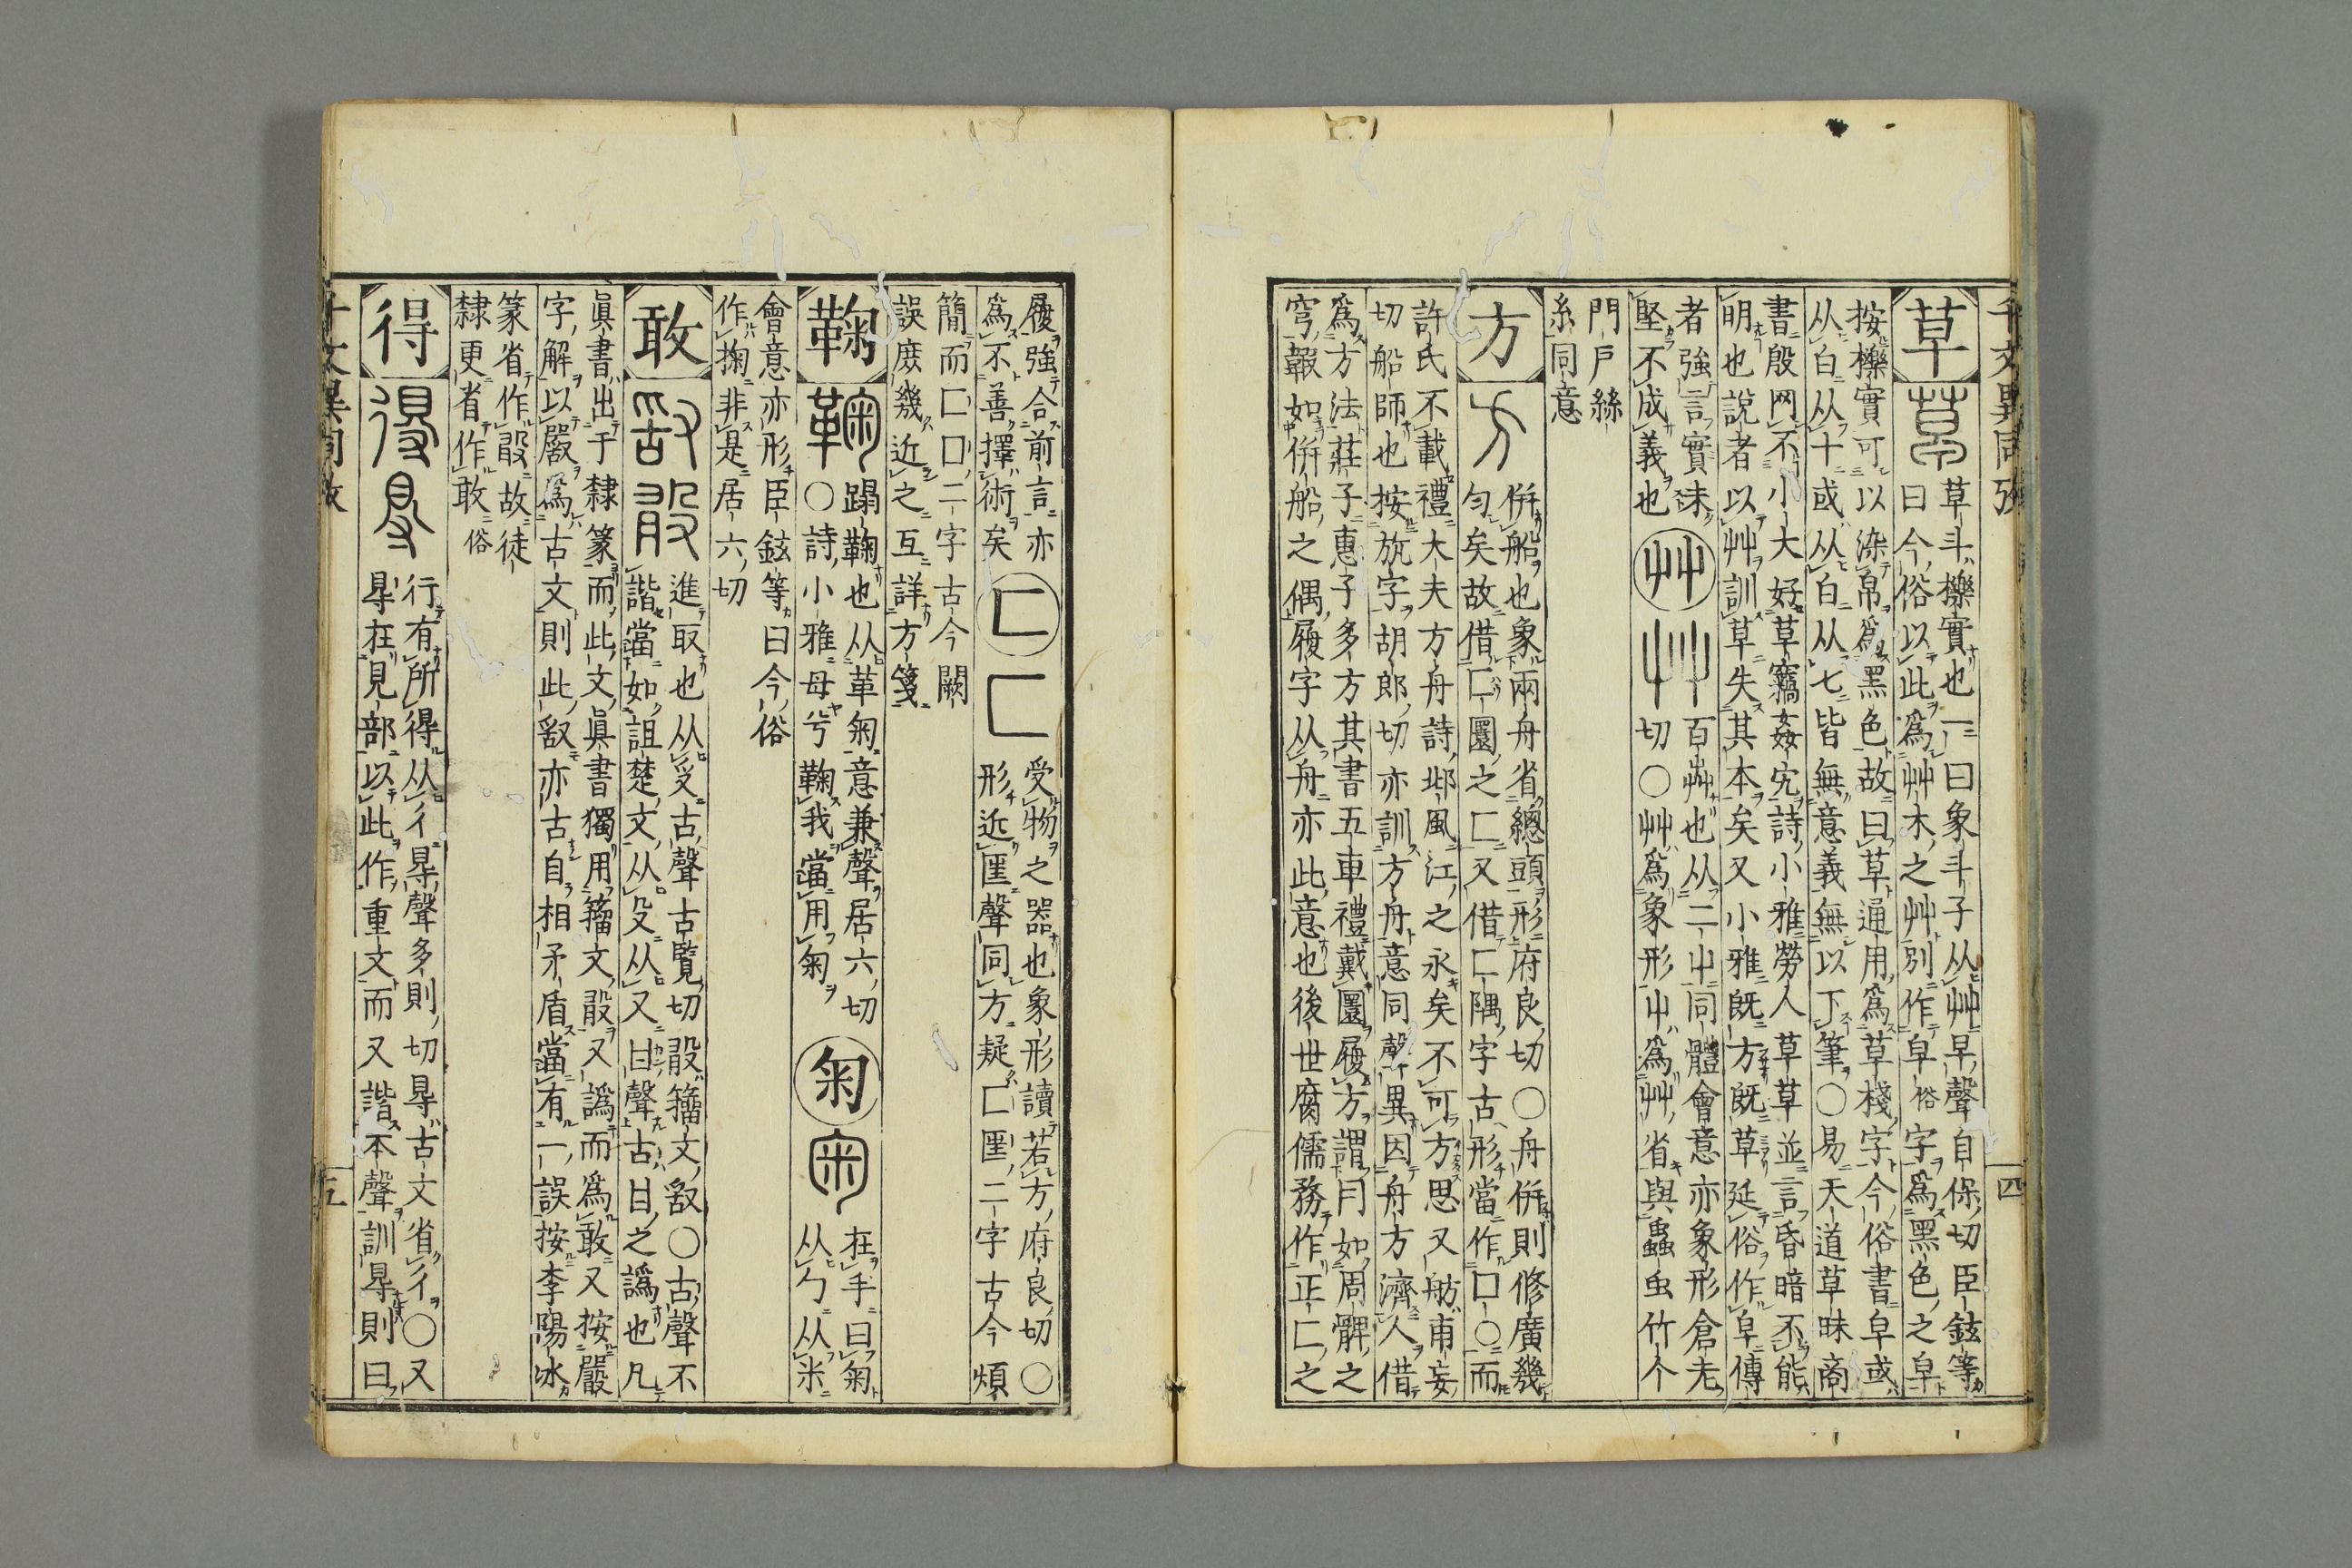 千文異同攷
四
草
草斗櫟實也一曰象斗子从艸早聲自保切臣鉉等
曰今俗以此爲艸木之艸別作皁俗字爲黑色之皁
按櫟實可以染帛爲黑色故曰草通用爲草棧字今俗書皁或
从白从十或从白从七皆無意義無以下筆○易天道草昧商
書殷网不小大好草竊姦宄詩小雅勞人草草並言昏暗不能
明也說者以艸訓草失其本矣又小雅既方既草延俗作皁傳
者強言實未
堅不成義也
艸
百芔也从二屮同體會意亦象形倉先
切○艸爲象形屮爲艸省與蟲虫竹个
門戶絲
糸同意
方
併船也象兩舟省總頭形府良切○舟併則修廣幾
匀矣故借匚圜之匚又借匚隅字古形當作口○而
許氏不載禮大夫方舟詩邶風江之永矣不可方思又舫甫妄
切船師也按斻字胡郎切亦訓方舟意同聲異因舟方濟人借
爲方法莊子惠子多方其書五車禮戴圜履方謂冃如周髀之
穹䩉如併船之偶履字从舟亦此意也後世腐儒務作正匚之
履強合前言亦
爲不善擇術矣
匚
受物之器也象形讀若方府良切○
形近匩聲同方疑匚匩二字古今煩
簡而匚口二字古今闕
誤庶幾近之互詳方箋
鞠
蹋鞠也从革匊意兼聲居六切
○詩小雅母兮鞠我當用匊
匊
在手曰匊
从勹从米
會意亦形臣鉉等曰今俗
作掬非是居六切
敢
進取也从𠬪古聲古覽切𣪏籀文𠭖○古聲不
諧當如詛楚文从殳从又甘聲古甘之譌也凡
眞書出于隸篆而此文眞書獨用籀文𣪏又譌而爲敢又按嚴
字解以嚴爲古文則此𠭖亦古自相矛盾當有一誤按李陽冰
篆省作𣪏故徒
隸更者作敢俗
得
行有所得从彳㝵聲多則切㝵古文省彳○又
㝵在見部以此作重文而又諧本聲訓㝵則曰
千文異同攷
五